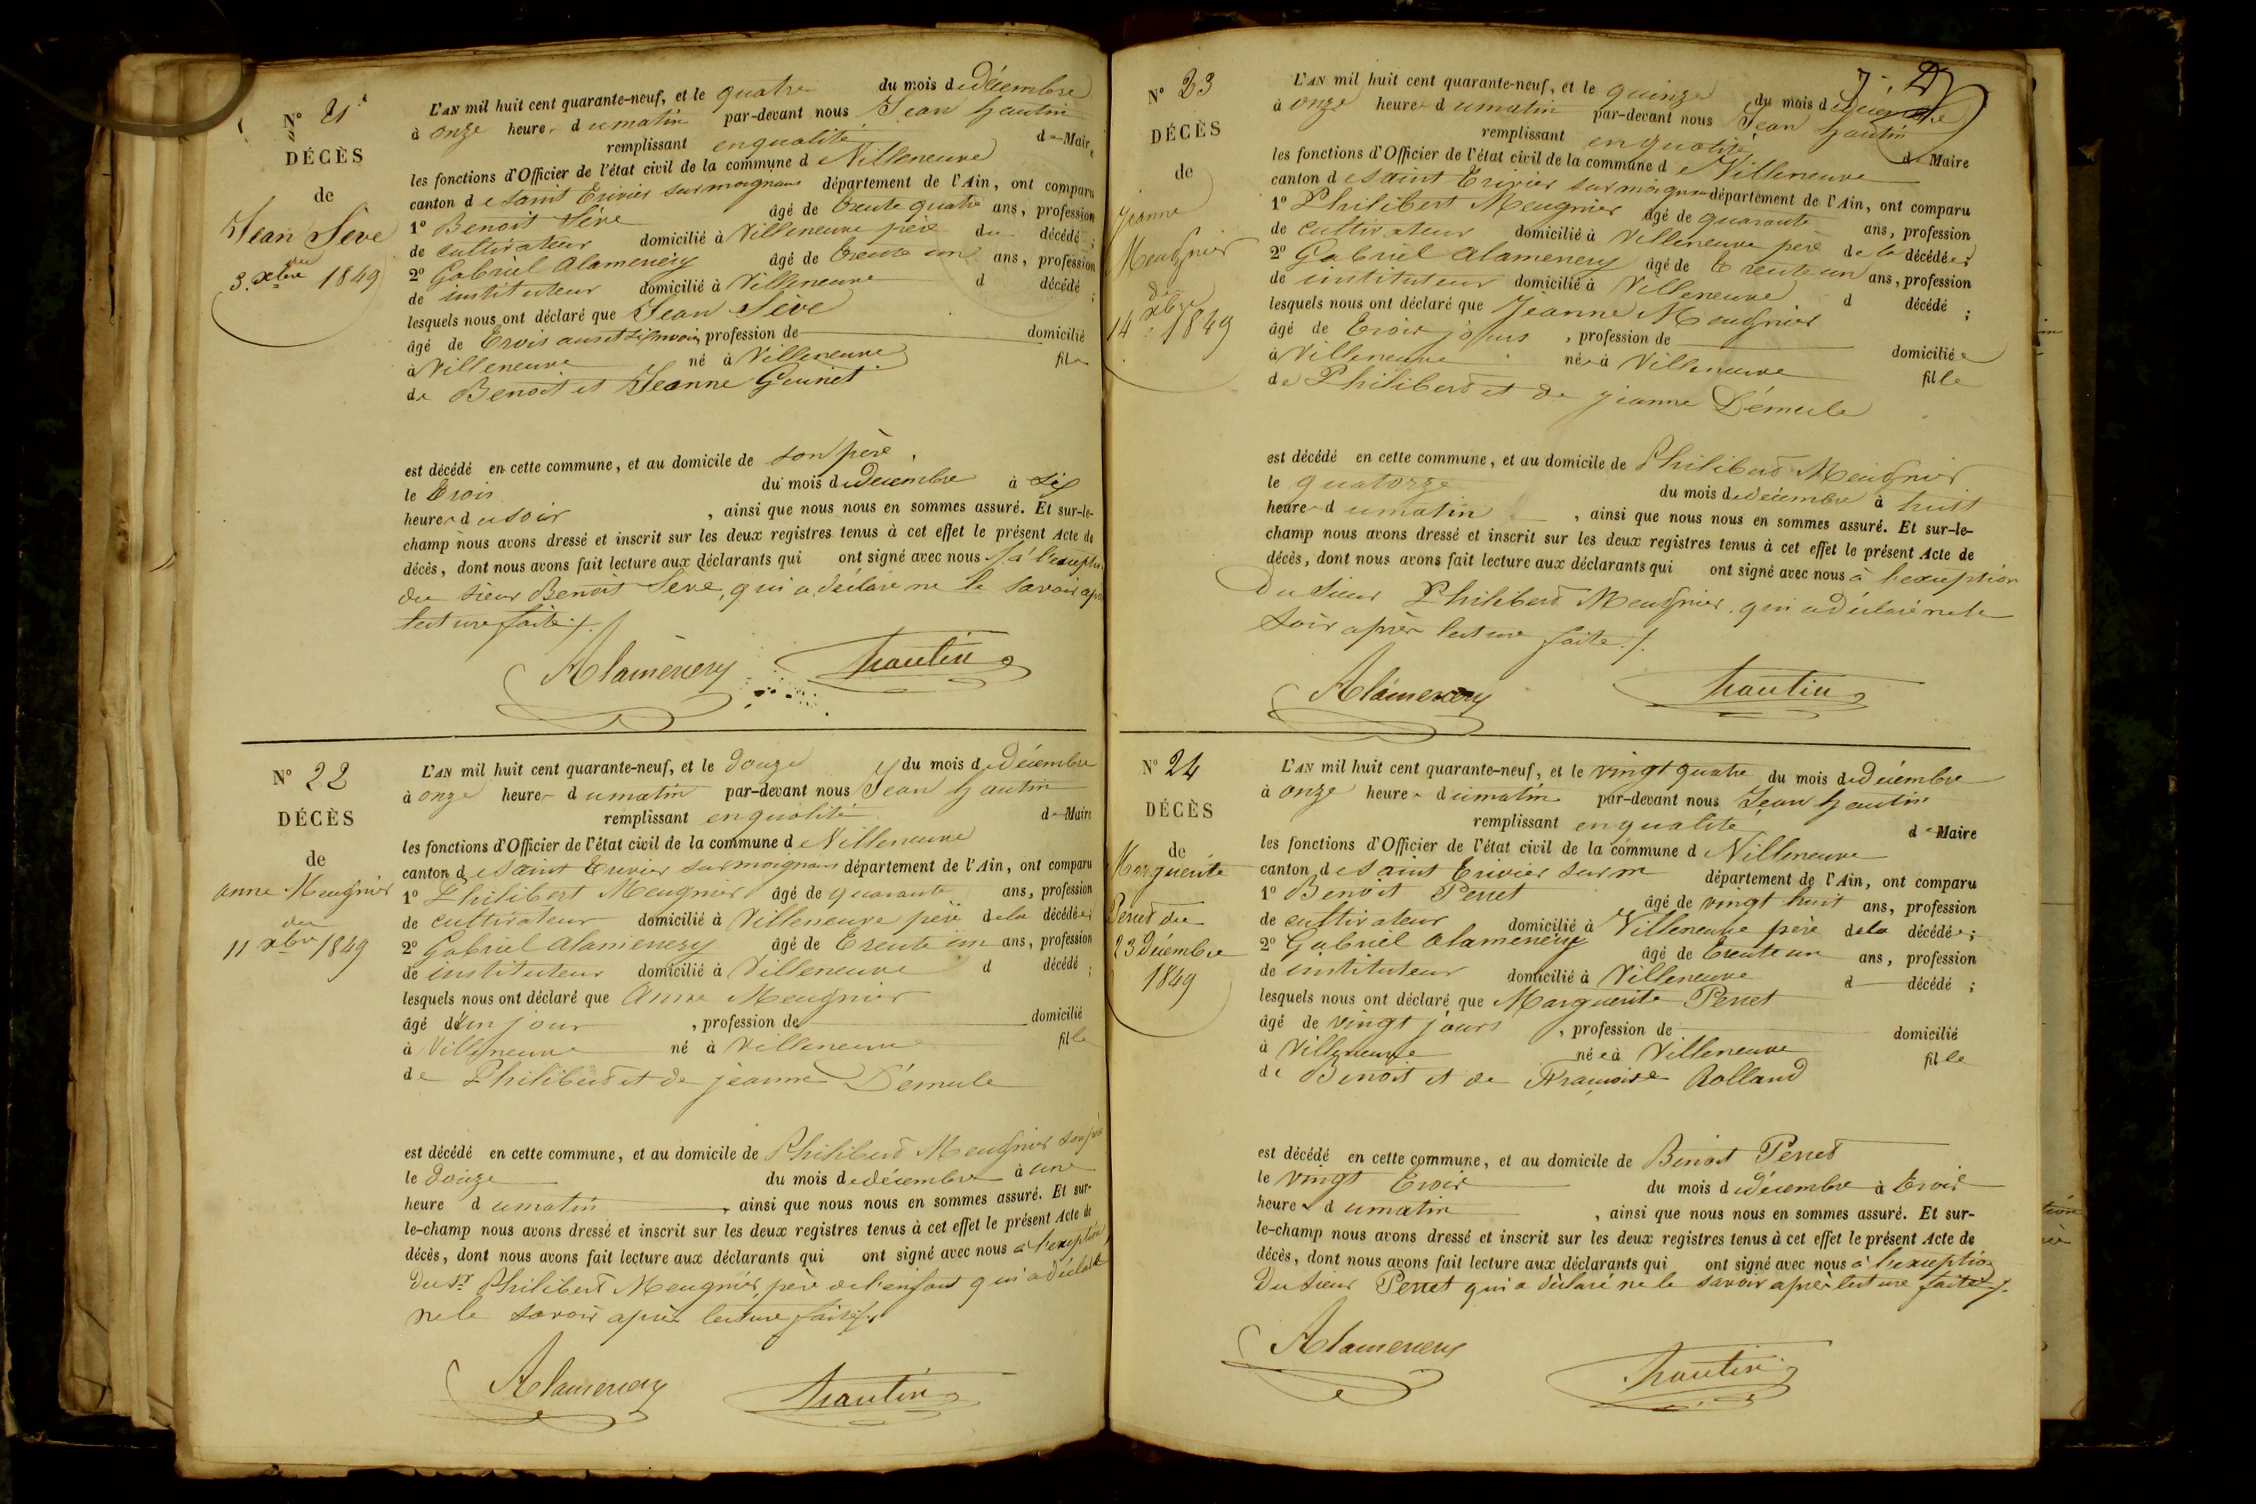 N° 21
DÉCÈS
de
Jean Sève
du
3. xbre 1849
L'AN mil huit cent quarante-neuf, et le quatre du mois de Décembre
à onze heures du matin par-devant nous Jean hautin
remplissant en qualité de Maire
les fonctions d'Officier de l'état civil de la commune de Villeneuve
canton de saint Trivier sur moignans département de l'Ain, ont comparu
1° Benoit Sève âgé de trente quatre ans, profession
de cultivateur domicilié à Villeneuve père du décédé ;
2° Gabriel Alamenery âgé de trente un ans, profession
de instituteur domicilié à Villeneuve d décédé ;
lesquels nous ont déclaré que Jean Sève
âgé de trois ans et six mois, profession de domicilié
à Villeneuve né à Villeneuve fils
de Benoit et Jeanne Guinet
est décédé en cette commune, et au domicile de son père,
le trois du mois de Décembre à six
heures du soir, ainsi que nous nous en sommes assuré. Et sur-le-
champ nous avons dressé et inscrit sur les deux registres tenus à cet effet le présent Acte de
décès, dont nous avons fait lecture aux déclarants qui ont signé avec nous à l'exception
du sieur Benoit Sève, qui a déclaré ne le savoir après
lecture faite ./.
Alamenery hautin
N° 22
DÉCÈS
de
anne Meugnier
du
11 xbre 1849
L'AN mil huit cent quarante-neuf, et le douze du mois de décembre
à onze heures du matin par-devant nous Jean hautin
remplissant en qualité de Maire
les fonctions d'Officier de l'état civil de la commune de Villeneuve
canton de saint Trivier sur moignans département de l'Ain, ont comparu
1° Philibert Meugnier âgé de quarante ans, profession
de cultivateur domicilié à Villeneuve père de la décédée ;
2° Gabriel Alamenery âgé de trente un ans, profession
de instituteur domicilié à Villeneuve d décédé ;
lesquels nous ont déclaré que anne Meugnier
âgé d'un jour, profession de domicilié
à Villeneuve né à Villeneuve fille
de Philibert et de jeanne Démule
est décédé en cette commune, et au domicile de Philibert Meugnier son père
le douze du mois de décembre à une
heure du matin, ainsi que nous nous en sommes assuré. Et sur-
le-champ nous avons dressé et inscrit sur les deux registres tenus à cet effet le présent Acte de
décès, dont nous avons fait lecture aux déclarants qui ont signé avec nous à l'exception
Du Sr Philibert Meugnier, père de l'enfant qui a déclaré
ne le savoir après lecture faite ./.
Alamenery hautin
N° 23
DÉCÈS
de
Jeanne
Meugnier
du
14 xbre 1849
L'AN mil huit cent quarante-neuf, et le quinze du mois de décembre
à onze heures du matin par-devant nous Jean hautin
remplissant en qualité de Maire
les fonctions d'Officier de l'état civil de la commune de Villeneuve
canton de saint Trivier sur moignans département de l'Ain, ont comparu
1° Philibert Meugnier âgé de quarante ans, profession
de cultivateur domicilié à Villeneuve père de la décédée ;
2° Gabriel Alamenery âgé de trente un ans, profession
de instituteur domicilié à Villeneuve d décédé ;
lesquels nous ont déclaré que Jeanne Meugnier
âgé de trois jours, profession de domiciliée
à Villeneuve née à Villeneuve fille
de Philibert et de jeanne Démule
est décédé en cette commune, et au domicile de Philibert Meugnier
le quatorze du mois de décembre à huit
heures du matin, ainsi que nous nous en sommes assuré. Et sur-le-
champ nous avons dressé et inscrit sur les deux registres tenus à cet effet le présent Acte de
décès, dont nous avons fait lecture aux déclarants qui ont signé avec nous à l'exception
Du sieur Philibert Meugnier qui a déclaré ne le
savoir après lecture faite ./.
Alamenery hautin
N° 24
DÉCÈS
de
Marguerite
Perret du
23 Décembre
1849
L'AN mil huit cent quarante-neuf, et le vingt quatre du mois de Décembre
à onze heures du matin par-devant nous Jean hautin
remplissant en qualité de Maire
les fonctions d'Officier de l'état civil de la commune d Villeneuve
canton de saint Trivier sur m département de l'Ain, ont comparu
1° Benoit Perret âgé de vingt huit ans, profession
de cultivateur domicilié à Villeneuve père de la décédée ;
2° Gabriel alamenery âgé de trente un ans, profession
de instituteur domicilié à Villeneuve d décédé ;
lesquels nous ont déclaré que Marguerite Perret
âgé de vingt jours, profession de domicilié
à Villeneuve née à Villeneuve fille
de Benoit et de Françoise Rolland
est décédé en cette commune, et au domicile de Benoit Perret
le vingt trois du mois de décembre à trois
heures du matin, ainsi que nous nous en sommes assuré. Et sur-
le-champ nous avons dressé et inscrit sur les deux registres tenus à cet effet le présent Acte de
décès, dont nous avons fait lecture aux déclarants qui ont signé avec nous à l'exception
Du sieur Perret qui a déclaré ne le savoir après lecture faite ./.
Alamenery hautin